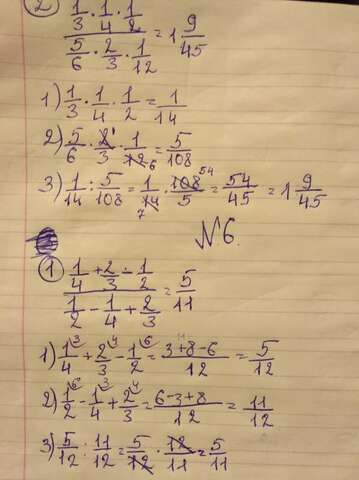 2) (1/3 · 1/4 · 1/2) / (5/6 · 2/3 · 1/12) = 1 9/45
1) 1/3 · 1/4 · 1/2 = 1/14
2) 5/6 · 2/3 · 1/12 = 5/108
3) 1/14 : 5/108 = 1/14 · 108/5 = 54/45 = 1 9/45
№6.
1) (1/4 + 2/3 - 1/2) / (1/2 - 1/4 + 2/3) = 5/11
1) 1/4 + 2/3 - 1/2 = (3+8-6)/12 = 5/12
2) 1/2 - 1/4 + 2/3 = (6-3+8)/12 = 11/12
3) 5/12 : 11/12 = 5/12 · 12/11 = 5/11